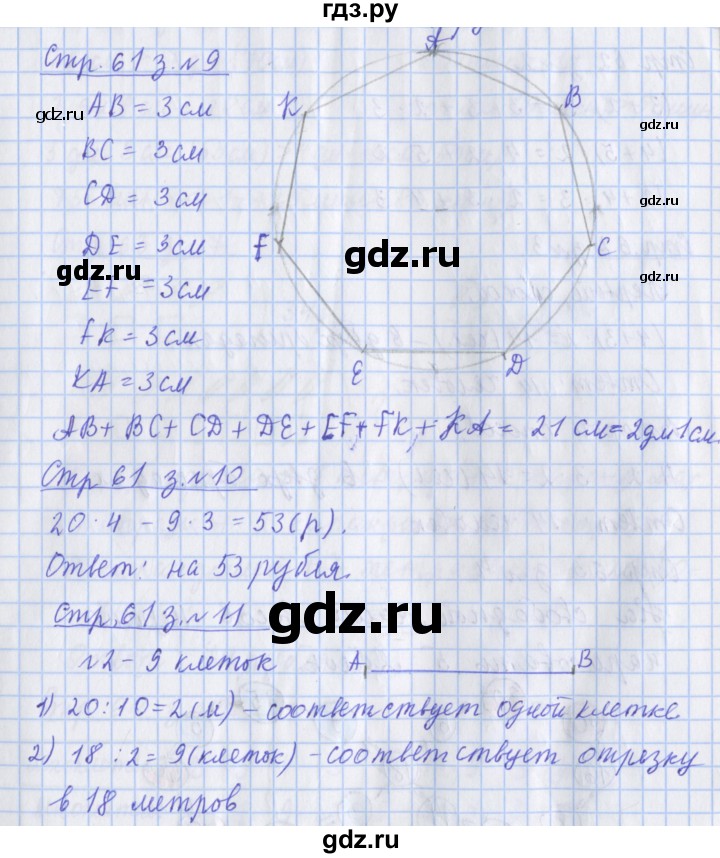 гдз.ру
Стр. 61 з. №9
AB = 3 см
BC = 3 см
CD = 3 см
DE = 3 см
EF = 3 см
FK = 3 см
KA = 3 см
A
B
C
D
E
F
K
AB + BC + CD + DE + EF + FK + KA = 21 см = 2 дм 1 см.
Стр 61 з. №10
20 · 4 - 9 · 3 = 53 (р).
Ответ: на 53 рубля.
Стр. 61 з. №11
№2 - 9 клеток
A B
1) 20 : 10 = 2 (м) - соответствует одной клетке
2) 18 : 2 = 9 (клеток) - соответствует отрезку
в 18 метров
gdz.ru
gdz.ru
gdz.ru
gdz.ru
gdz.ru
gdz.ru
gdz.ru
gdz.ru
gdz.ru
gdz.ru
gdz.ru
gdz.ru